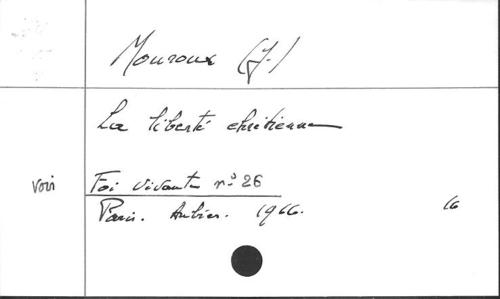 Mouroux (J.)
La liberté chrétienne
voir Foi vivante n° 26
Paris. Aubier. 1966. 16